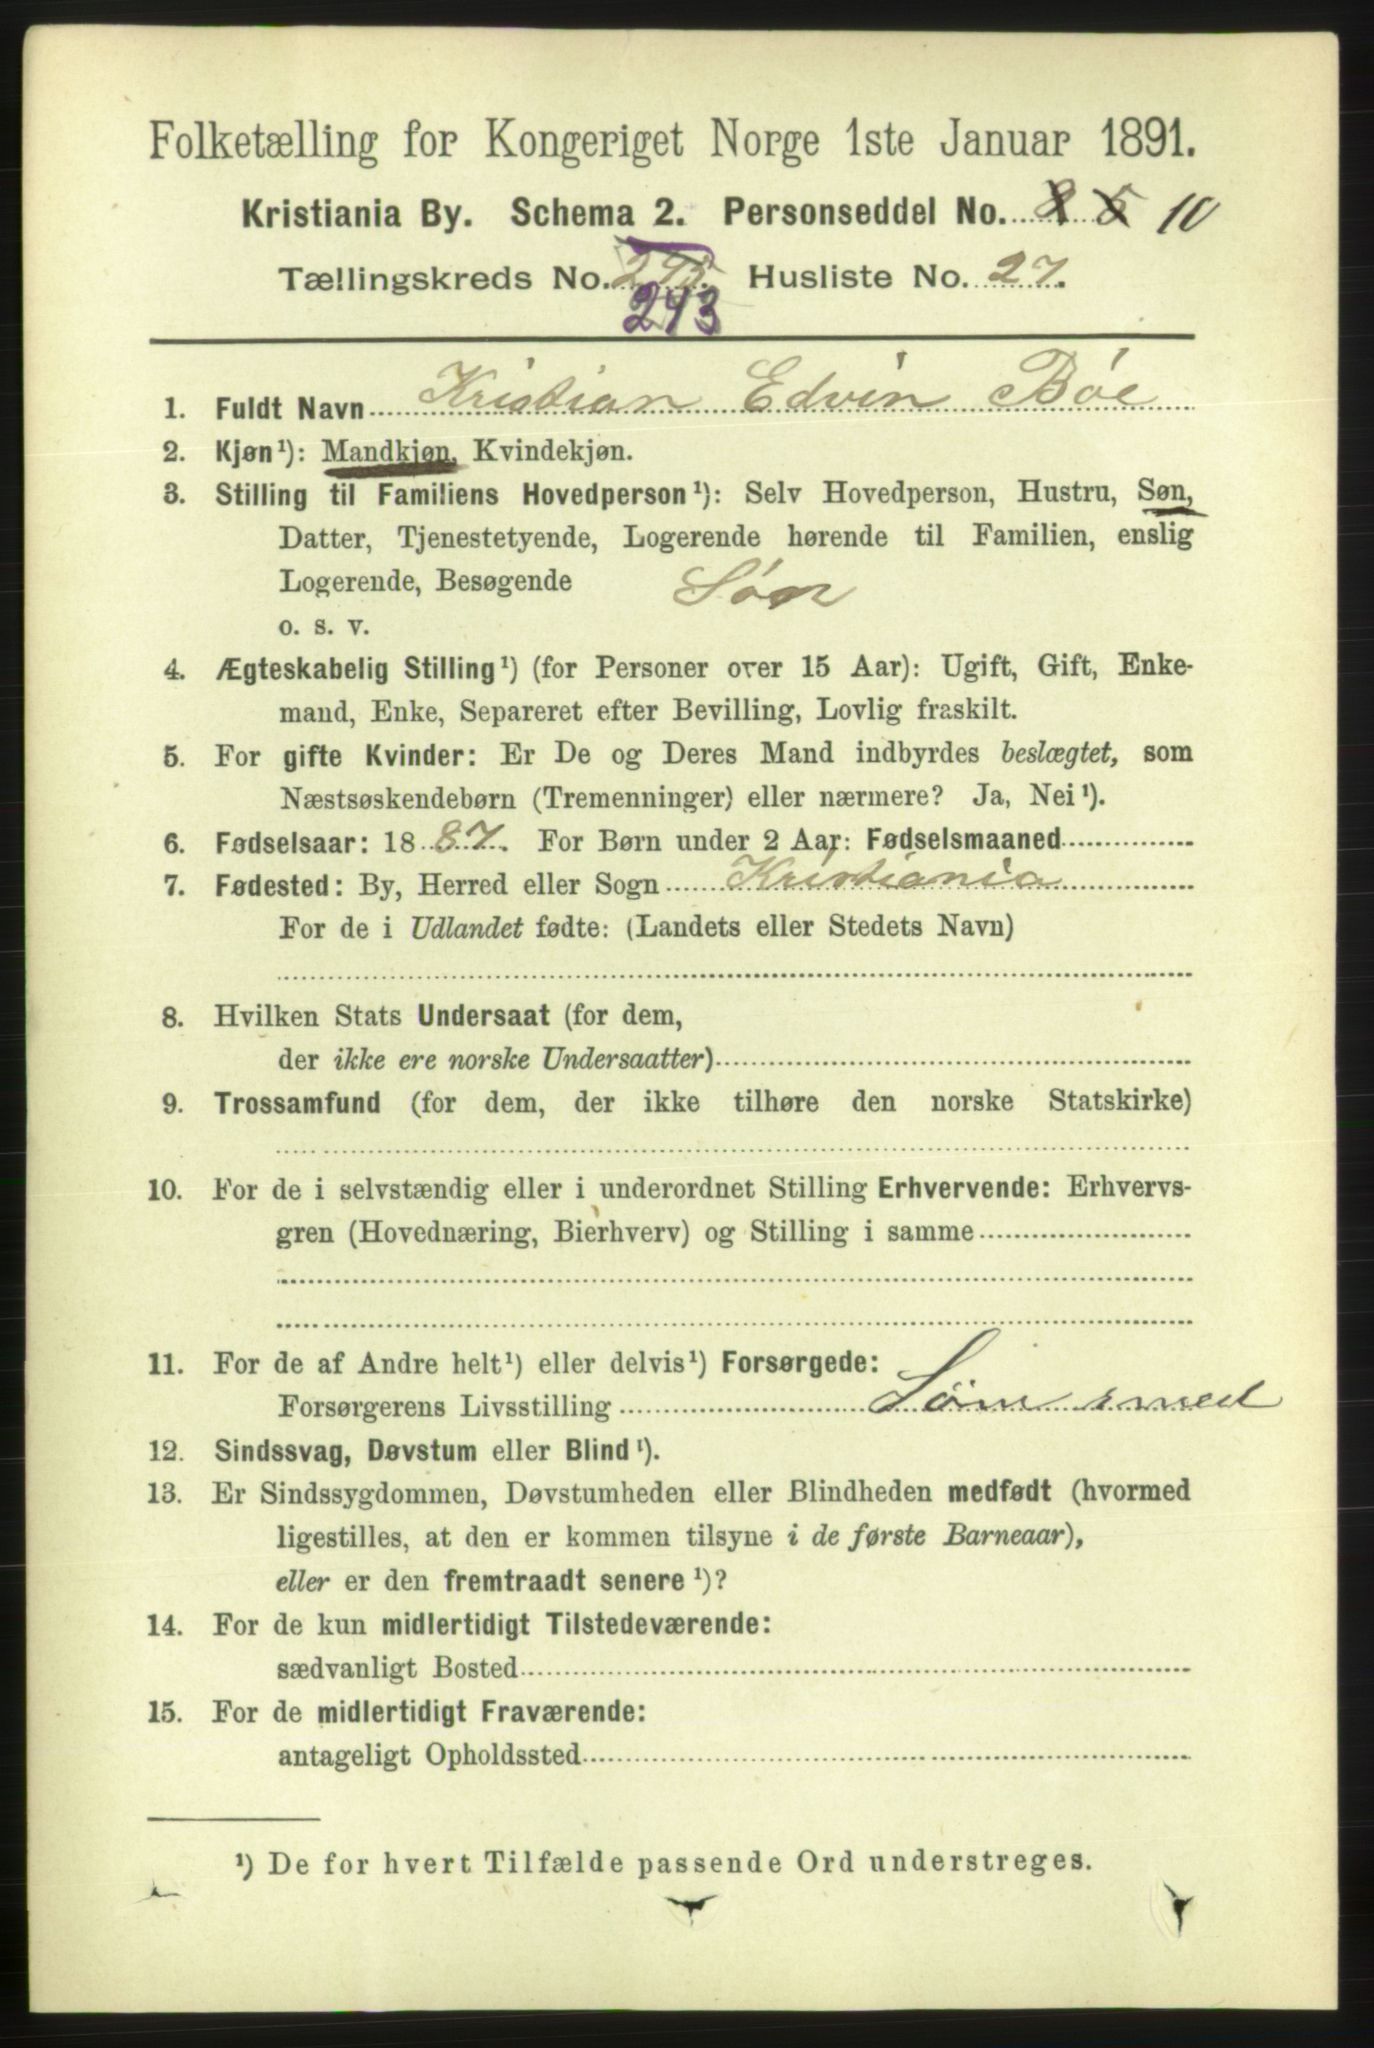 Folketælling for Kongeriget Norge 1ste Januar 1891.
Kristiania By. Schema 2. Personseddel No. 8 5 10
Tællingskreds No. Husliste No. 27.
243
1. Fuldt Navn Kristian Edvin Bøe
2. Kjøn¹): Mandkjøn, Kvindekjøn.
3. Stilling til Familiens Hovedperson¹): Selv Hovedperson, Hustru, Søn,
Datter, Tjenestetyende, Logerende hørende til Familien, enslig
Logerende, Besøgende Søn
o. s. v.
4. Ægteskabelig Stilling¹) (for Personer over 15 Aar): Ugift, Gift, Enke-
mand, Enke, Separeret efter Bevilling, Lovlig fraskilt.
5. For gifte Kvinder: Er De og Deres Mand indbyrdes beslægtet, som
Næstsøskendebørn (Tremenninger) eller nærmere? Ja, Nei¹).
6. Fødselsaar: 1887. For Børn under 2 Aar: Fødselsmaaned
7. Fødested: By, Herred eller Sogn Kristiania
For de i Udlandet fødte: (Landets eller Stedets Navn)
8. Hvilken Stats Undersaat (for dem,
der ikke ere norske Undersaatter)
9. Trossamfund (for dem, der ikke tilhøre den norske Statskirke)
10. For de i selvstændig eller i underordnet Stilling Erhvervende: Erhvervs-
gren (Hovednæring, Bierhverv) og Stilling i samme
11. For de af Andre helt¹) eller delvis¹) Forsørgede:
Forsørgerens Livsstilling Søm smed
12. Sindssvag, Døvstum eller Blind¹).
13. Er Sindssygdommen, Døvstumheden eller Blindheden medfødt (hvormed
ligestilles, at den er kommen tilsyne i de første Barneaar),
eller er den fremtraadt senere¹)?
14. For de kun midlertidigt Tilstedeværende:
sædvanligt Bosted
15. For de midlertidigt Fraværende:
antageligt Opholdssted
¹) De for hvert Tilfælde passende Ord understreges.